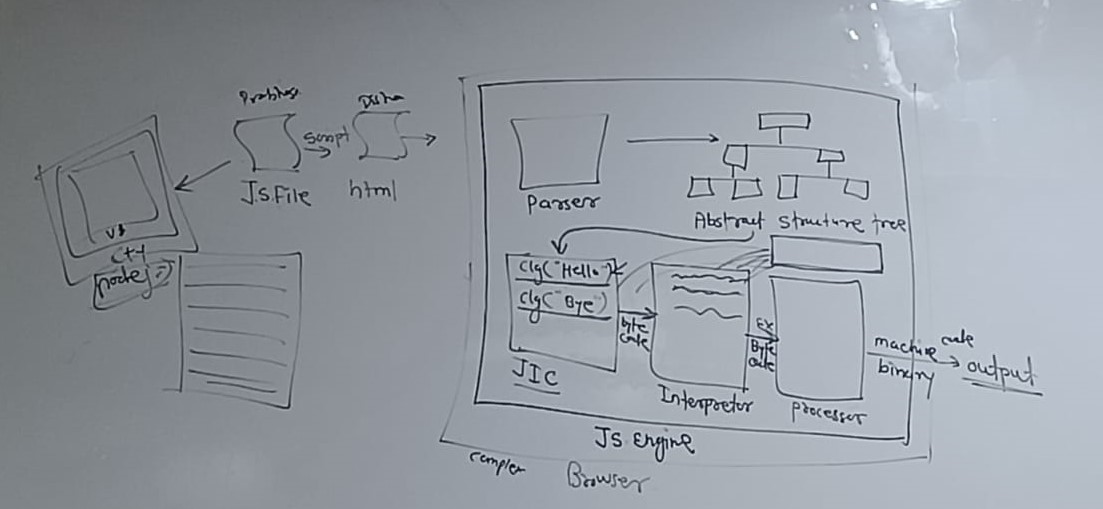 script
J.S.File
html
V8
C++
nodejs
Parser
Abstract Structure tree
clg("Hello")
clg("Bye")
JIC
byte
code
Interpreter
EX
Byte
code
processer
machine code
binary
output
JS Engine
Browser